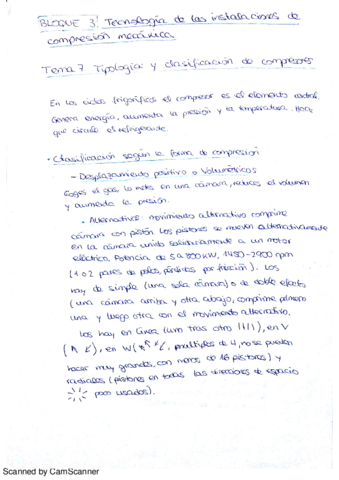 BLOQUE 3: Tecnología de las instalaciones de
compresión mecánica
Tema 7 Tipología y clasificación de compresores
En los ciclos frigoríficos el compresor es el elemento central
Genera energía, aumenta la presión y la temperatura. Hace
que circule el refrigerante.
• Clasificación según la forma de compresión
- Desplazamiento positivo o volumétricos
Coges el gas lo metes en una cámara, reduces el volumen
y aumenta la presión.
• Alternativos: movimiento alternativo comprime
cámara con pistón. Los pistones se mueven alternativamente
en la cámara unido solidariamente a un motor
eléctrico. Potencia de 5 a 800 kW, 1450-2900 rpm
(1 o 2 pares de polos, pérdidas por fricción). Los
hay de simple (una sola cámara) o de doble efecto
(una cámara arriba y otra abajo, comprime primero
una y luego otra con el movimiento alternativo.
Los hay en línea (uno tras otro), en V
, en W (múltiples de 4, no se pueden
hacer muy grandes, con menos de 16 pistones) y
radiales (pistones en todas las direcciones de espacio
poco usados).
Scanned by CamScanner